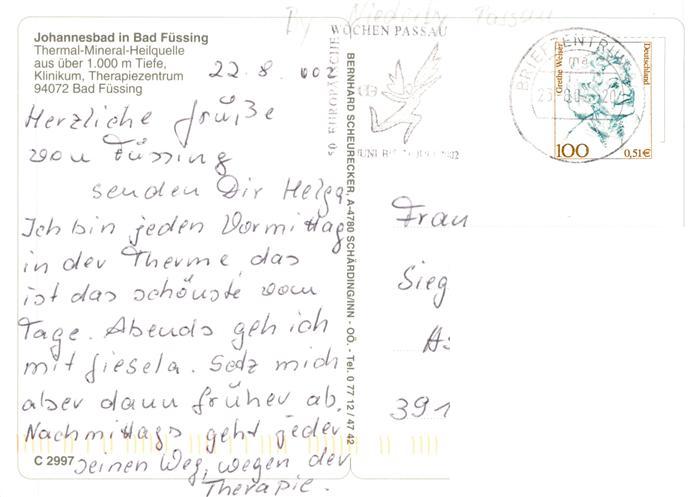 By Niederby Passau
Johannesbad in Bad Füssing
Thermal-Mineral-Heilquelle
aus über 1.000 m Tiefe,
Klinikum, Therapiezentrum
94072 Bad Füssing
22.8.002
Herzliche Grüße
von Füssing
senden Dir Helga.
Ich bin jeden Vormittag
in der Therme, das
ist das schönste vom
Tage. Abends geh ich
mit Giesela. Setz mich
aber dann früher ab.
Nachmittags geht jeder
seinen Weg, wegen der
Therapie.
C 2997
BERNHARD SCHEURECKER, A-4780 SCHÄRDING/INN - OÖ. - Tel. 0 77 12 / 47 42
50 EUROPÄISCHE
WOCHEN PASSAU
BRIEFZENTRUM
Grethe Weiser
Deutschland
100
0,51€
Frau
Sieg
391